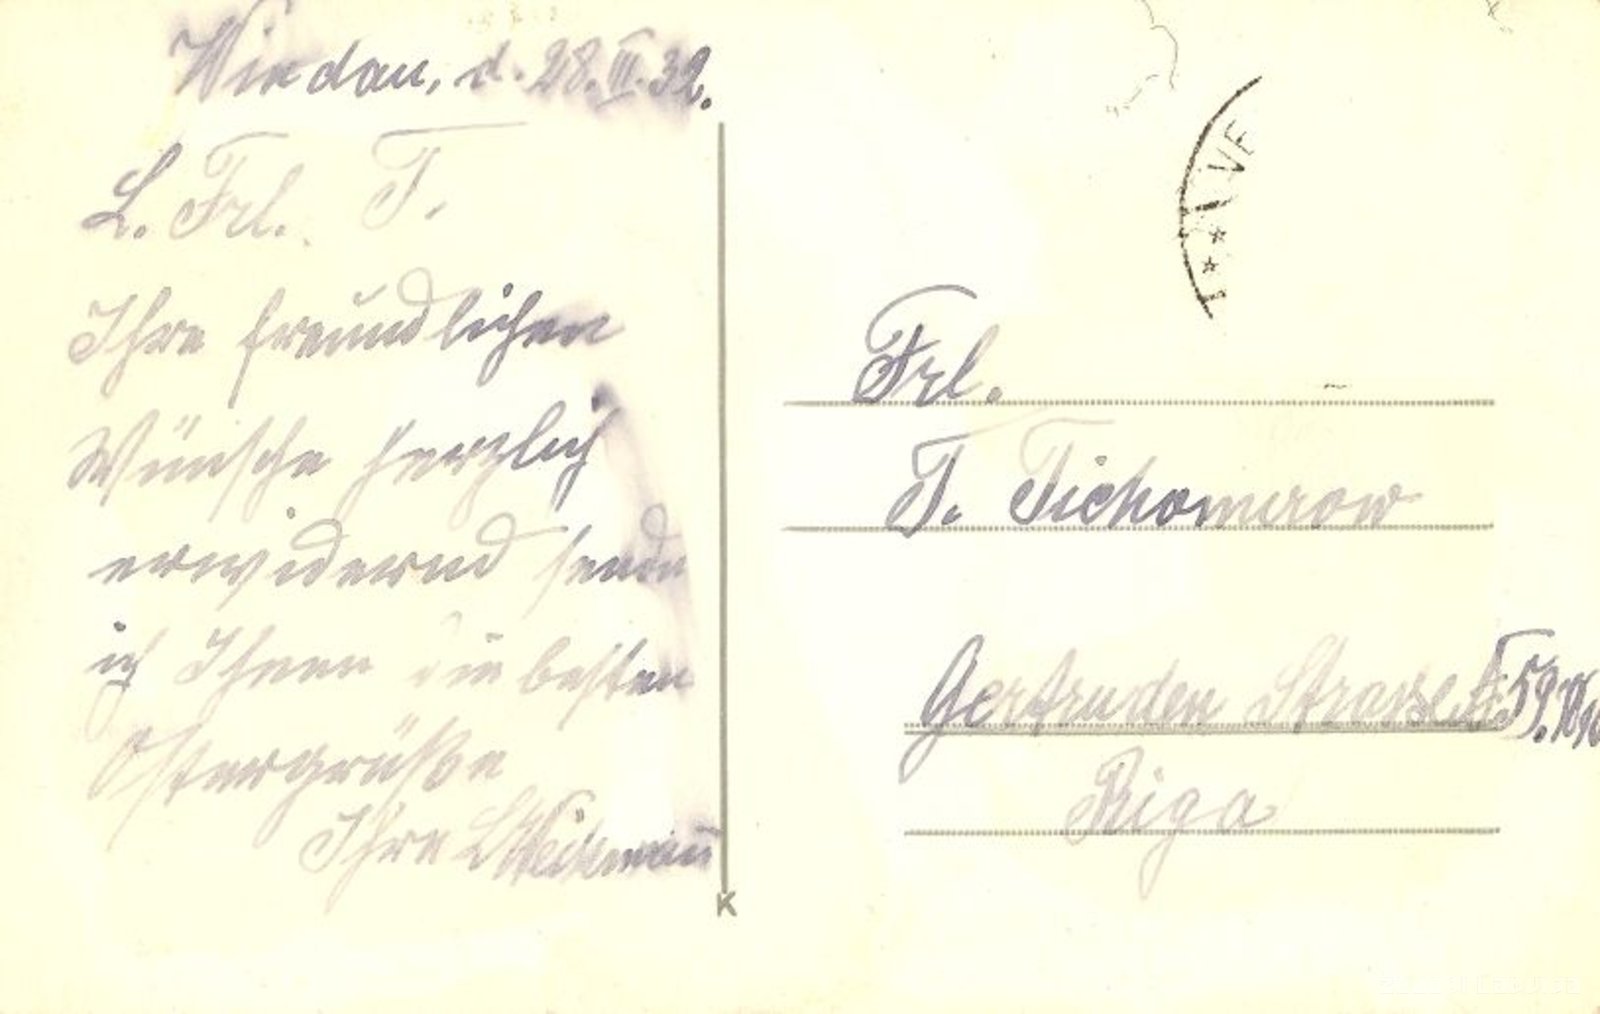 Windau, d. 28.III.32.
L. Frl. T.
Ihre freundlichen
Wünsche herzlich
erwidernd sende
ich Ihnen die besten
Ostergrüße
Ihre
K
VE
Frl.
T. Tichomirow
Gertruden Strasse 59.
Riga